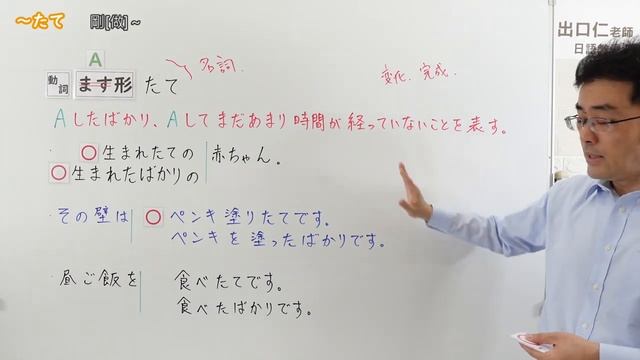 ～たて 剛[做]～
出口仁老師
A
動詞 ます形 たて
名詞
変化、完成
Aしたばかり、Aしてまだあまり時間が経っていないことを表す。
〇生まれたての赤ちゃん。
〇生まれたばかりの
その壁は〇ペンキ塗りたてです。
ペンキを塗ったばかりです。
昼ご飯を 食べたてです。
食べたばかりです。